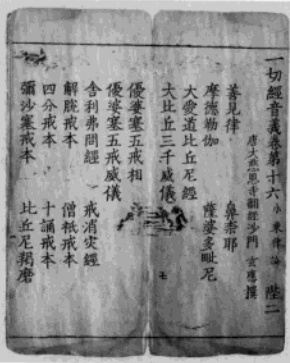 一切經音義卷第十六 小乘律論 陛二
唐大慈恩寺翻經沙門 玄應撰
善見律 鼻柰耶
摩德勒伽 薩婆多毗尼
大愛道比丘尼經
大比丘三千威儀
七
優婆塞五戒相
優婆塞五戒威儀
舍利弗問經 戒消灾經
解脫戒本 僧祇戒本
四分戒本 十誦戒本
彌沙塞戒本 比丘尼羯磨